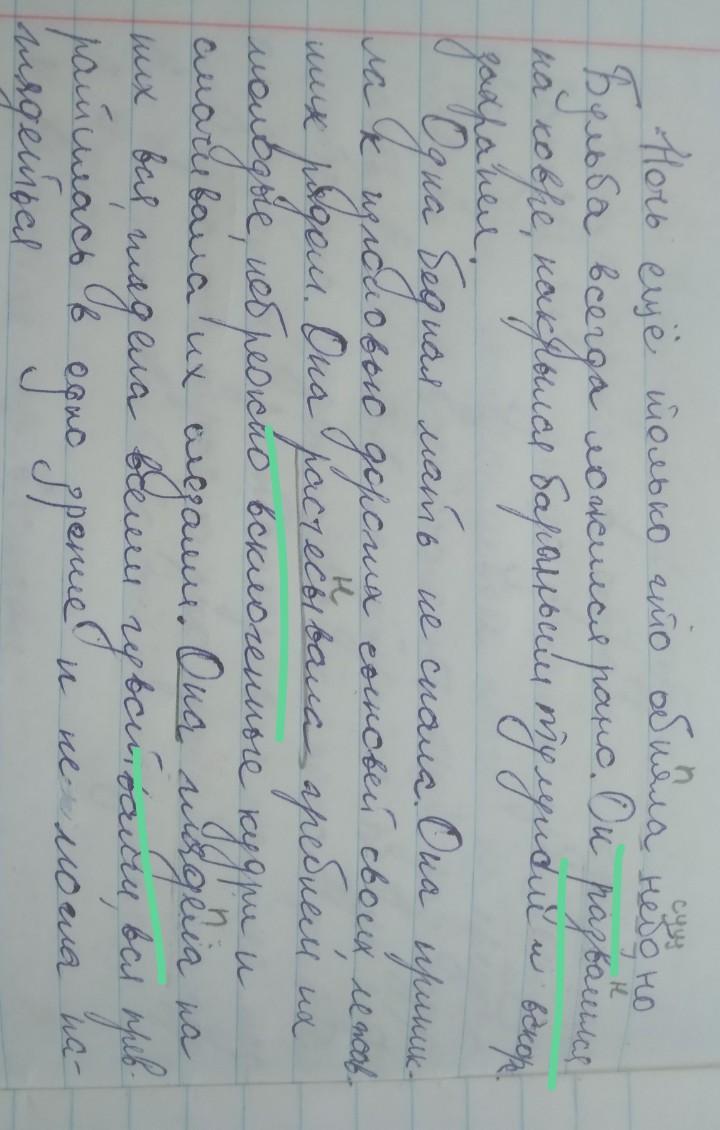 Ночь ещё только что обняла небо но
п
сущ
Бульба всегда ложился рано. Он развалился
н
на ковре, накрылся бараньим тулупом и вскор.
захрапел.
Одна бедная мать не спала. Она приник-
ла к изголовью дорогих сыновей своих лежав.
ших рядом. Она расчесывала гребнем их
н
молодые, небрежно всклоченные кудри и
смачивала их слезами. Она глядела на
п
них вся, глядела всеми чувствами, вся прев.
ратилась в одно зрение и не могла на-
глядеться